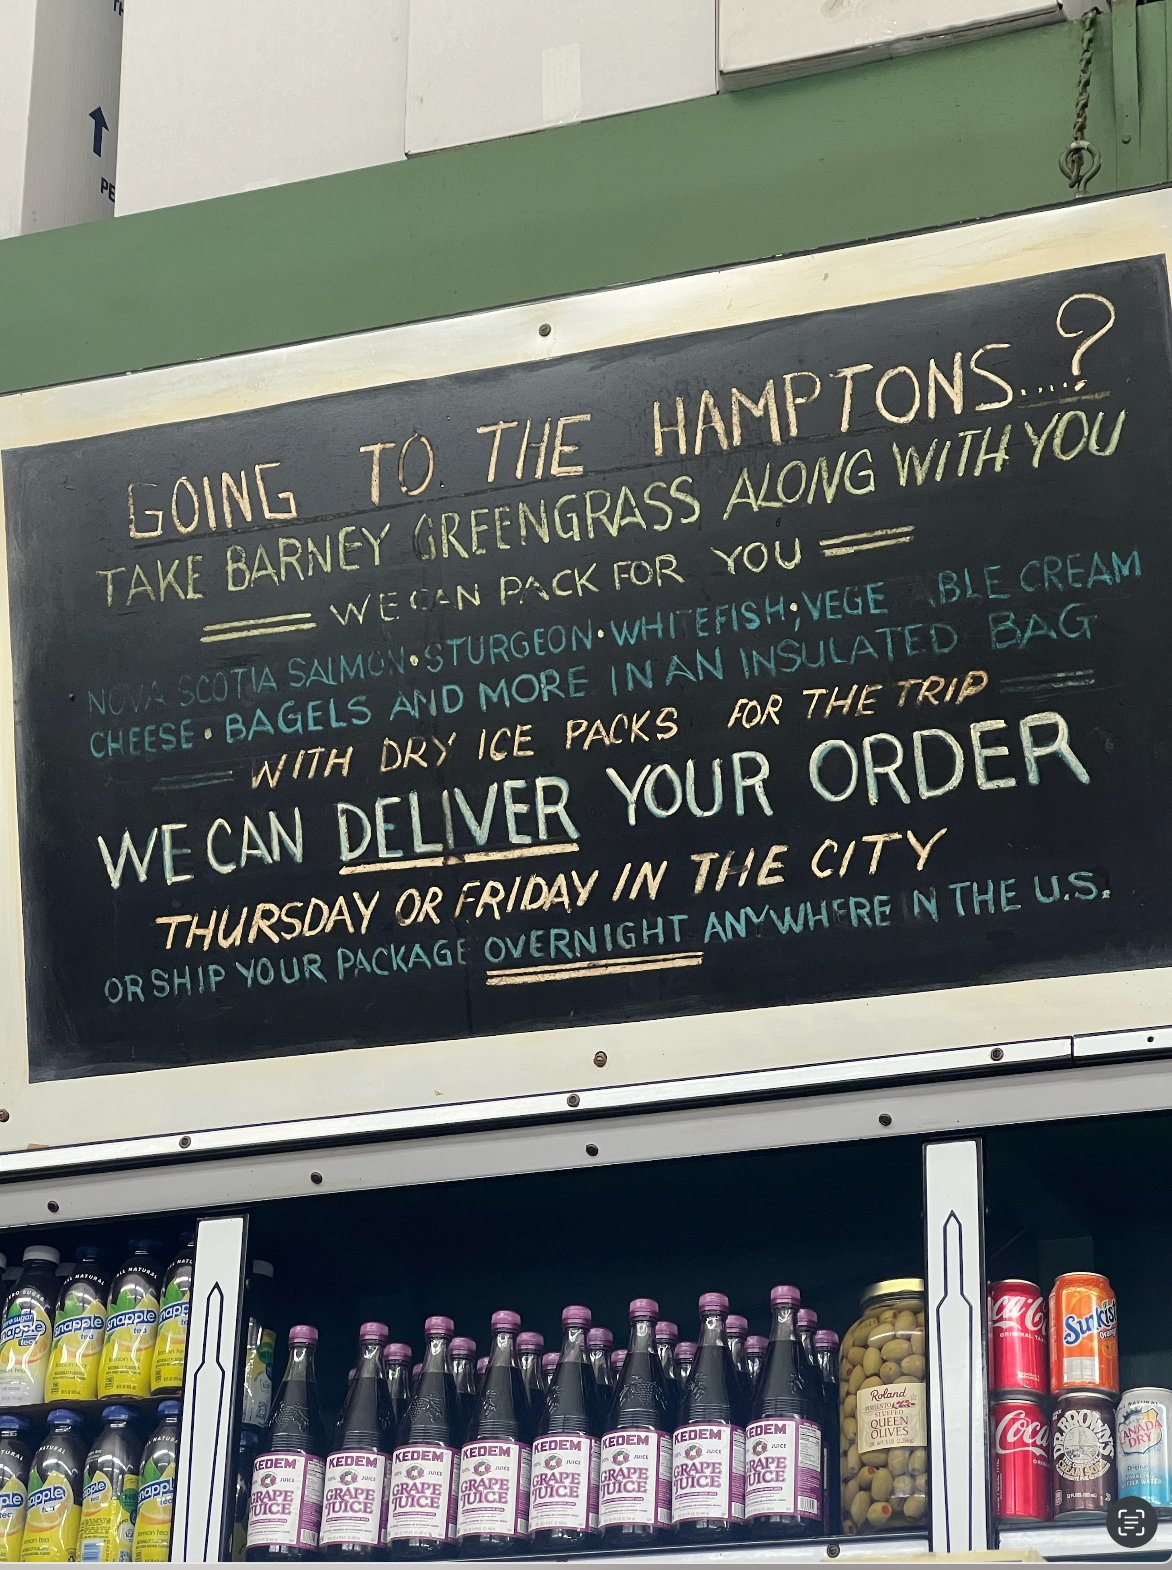 GOING TO THE HAMPTONS....?
TAKE BARNEY GREENGRASS ALONG WITH YOU
WE CAN PACK FOR YOU
NOVA SCOTIA SALMON • STURGEON • WHITEFISH; VEGE ABLE CREAM
CHEESE • BAGELS AND MORE IN AN INSULATED BAG
WITH DRY ICE PACKS FOR THE TRIP
WE CAN DELIVER YOUR ORDER
THURSDAY OR FRIDAY IN THE CITY
OR SHIP YOUR PACKAGE OVERNIGHT ANYWHERE IN THE U.S.
Snapple
tea
lemon tea
KEDEM
100% JUICE
GRAPE
JUICE
KEDEM
JUICE
GRAPE
JUICE
KEDEM
JUICE
GRAPE
JUICE
KEDEM
JUICE
GRAPE
JUICE
KEDEM
JUICE
GRAPE
JUICE
KEDEM
JUICE
GRAPE
JUICE
KEDEM
JUICE
GRAPE
JUICE
KEDEM
JUICE
GRAPE
JUICE
Roland
PIMIENTO
STUFFED
QUEEN
OLIVES
Coca-C
ORIGINAL TA
Sunkist
Coca
DR. BROWN'S
CREAM SODA
CANADA
DRY